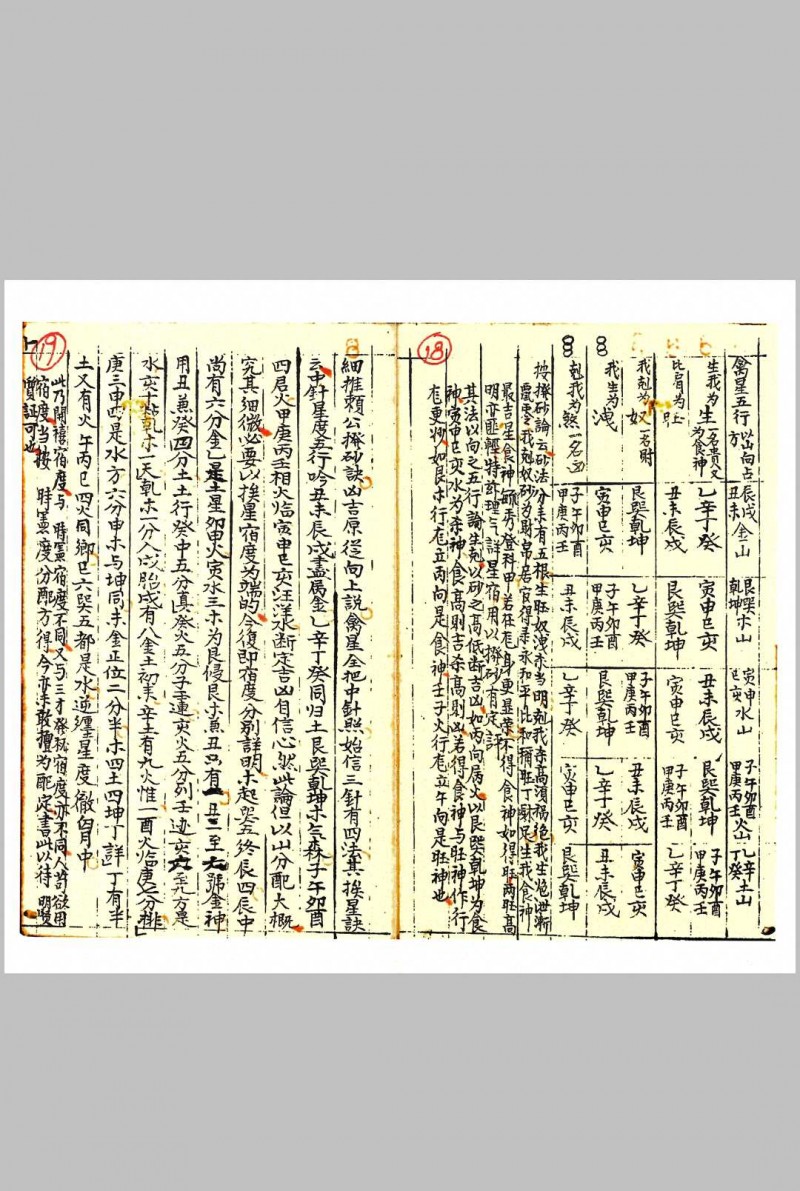 18
禽星五行以山向占方
辰戌丑未金山
艮巽乾坤木山
寅申巳亥水山
子午卯酉甲庚丙壬火山
乙辛丁癸土山
生我為生一名貴又為食神
乙辛丁癸
寅申巳亥
丑未辰戌
艮巽乾坤
子午卯酉甲庚丙壬
比肩為旺
丑未辰戌
艮巽乾坤
寅申巳亥
子午卯酉甲庚丙壬
乙辛丁癸
我剋為奴一名財
艮巽乾坤
乙辛丁癸
子午卯酉甲庚丙壬
丑未辰戌
寅申巳亥
我生為洩
寅申巳亥
子午卯酉甲庚丙壬
艮巽乾坤
乙辛丁癸
丑未辰戌
剋我為煞一名
子午卯酉甲庚丙壬
丑未辰戌
乙辛丁癸
寅申巳亥
艮巽乾坤
按撥砂論云砂法分来有五根生旺奴洩杀当明剋我杀高須禍絶我生洩
零我剋奴砂為財帛居官得禄永和平比和稱旺丁財足生我食神
最吉星食神秀登科甲若在身更显荣不得食神如得旺两旺高
明亦匪輕特理气詳星宿用以撥砂有定評
其法以向之五行論生剋以砂之高低断吉凶如丙向属火以艮巽乾坤為食
神寅申巳亥水為杀神食高則吉杀高則凶若得食神与旺神作行
更妙如艮木行立丙向是食神壬子火行立午向是旺神也
19
細推賴公撥砂訣凶吉原從向上説禽星全把中針照始信三針有四法其挨星訣
云中針星度五行吟丑未辰戌盡属金乙辛丁癸同归土艮巽乾坤木气森子午卯酉
四居火甲庚丙壬相火临寅申巳亥汪洋水断定吉凶自信心然此論但以山分配大概
究其細微必要以挨星宿度為端的今復即宿度分别詳明木起巽五終辰四辰中
尚有六分金乙是土星卯申火寅水三木為艮侵艮木兼丑只有一丑二至六號金神
用丑兼癸四分土土行癸中五分真癸火五分子重連亥火五分列壬
水亥十乾木一天乾木一分入戌胎戌有八金土初来辛土有九火惟一酉火临庚之分排
庚三申四是水方六分申木与坤同未金正位二分半木四土四坤丁詳丁有半
土又有火午丙巳四火同鄉巳六巽五都是水逆纏星度徹
此乃開禧宿度与時憲宿度不同又与三才發秘宿度亦不同人許欲用
宿度当按時憲度分配方得今亦未敢擅為配定書此以待明
質証可也